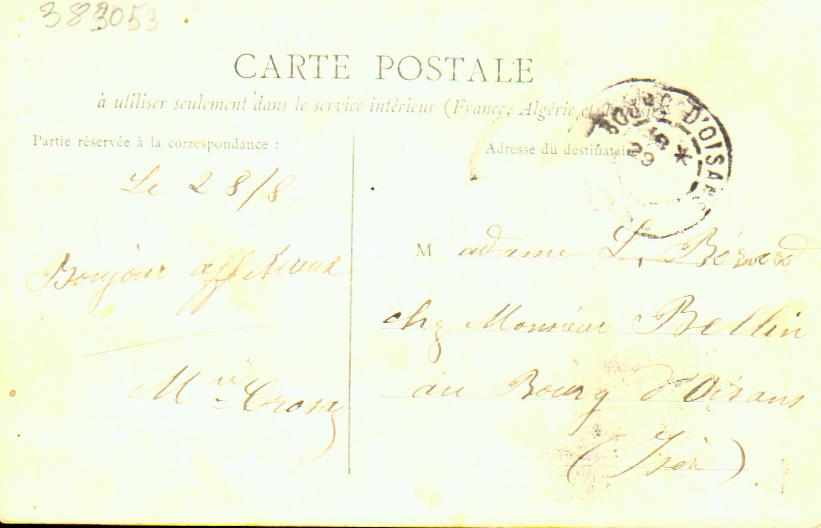 383053
CARTE POSTALE
à utiliser seulement dans le service intérieur (France, Algérie et
Partie réservée à la correspondance :
Adresse du destinataire
BOURG D'OISANS
29
Le 28/8
Bonjour affectueux
M
Madame L. Bérard
chez Monsieur Bellin
au Bourg d'Oisans
(Isère)